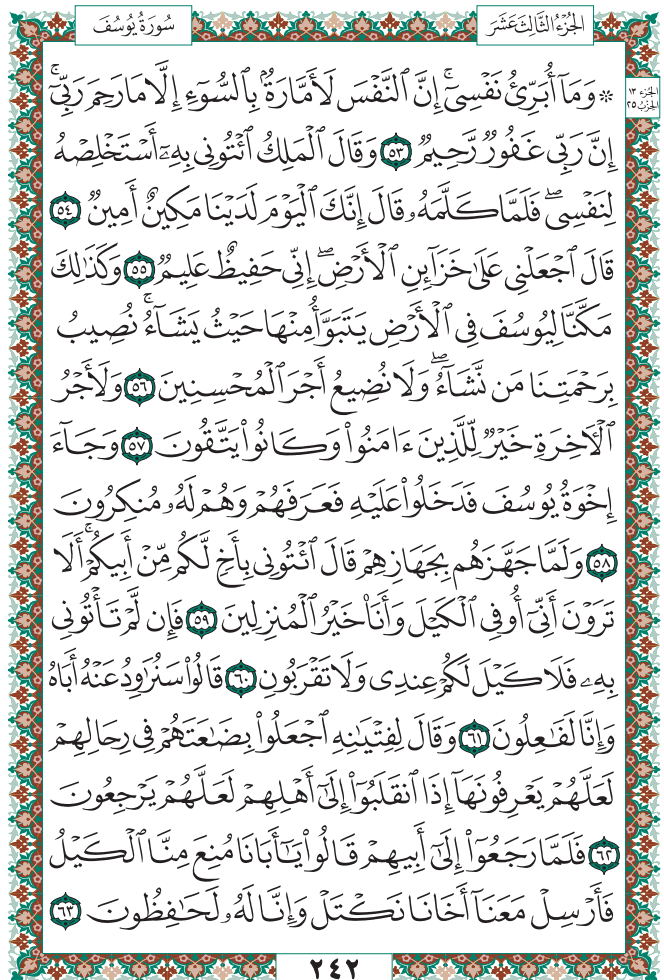 الجُزْءُ الثَّالِثَ عَشَرَ
سُورَةُ يُوسُفَ
الجزء ١٣
الحزب ٢٥
۞ وَمَآ أُبَرِّئُ نَفۡسِيٓۚ إِنَّ ٱلنَّفۡسَ لَأَمَّارَةُۢ بِٱلسُّوٓءِ إِلَّا مَا رَحِمَ رَبِّيٓۚ
إِنَّ رَبِّي غَفُورٞ رَّحِيمٞ ٥٣ وَقَالَ ٱلۡمَلِكُ ٱئۡتُونِي بِهِۦٓ أَسۡتَخۡلِصۡهُ
لِنَفۡسِيۖ فَلَمَّا كَلَّمَهُۥ قَالَ إِنَّكَ ٱلۡيَوۡمَ لَدَيۡنَا مَكِينٌ أَمِينٞ ٥٤
قَالَ ٱجۡعَلۡنِي عَلَىٰ خَزَآئِنِ ٱلۡأَرۡضِۖ إِنِّي حَفِيظٌ عَلِيمٞ ٥٥ وَكَذَٰلِكَ
مَكَّنَّا لِيُوسُفَ فِي ٱلۡأَرۡضِ يَتَبَوَّأُ مِنۡهَا حَيۡثُ يَشَآءُۚ نُصِيبُ
بِرَحۡمَتِنَا مَن نَّشَآءُۖ وَلَا نُضِيعُ أَجۡرَ ٱلۡمُحۡسِنِينَ ٥٦ وَلَأَجۡرُ
ٱلۡأٓخِرَةِ خَيۡرٞ لِّلَّذِينَ ءَامَنُواْ وَكَانُواْ يَتَّقُونَ ٥٧ وَجَآءَ
إِخۡوَةُ يُوسُفَ فَدَخَلُواْ عَلَيۡهِ فَعَرَفَهُمۡ وَهُمۡ لَهُۥ مُنكِرُونَ
٥٨ وَلَمَّا جَهَّزَهُم بِجَهَازِهِمۡ قَالَ ٱئۡتُونِي بِأَخٖ لَّكُم مِّنۡ أَبِيكُمۡۚ أَلَا
تَرَوۡنَ أَنِّيٓ أُوفِي ٱلۡكَيۡلَ وَأَنَا۠ خَيۡرُ ٱلۡمُنزِلِينَ ٥٩ فَإِن لَّمۡ تَأۡتُونِي
بِهِۦ فَلَا كَيۡلَ لَكُمۡ عِندِي وَلَا تَقۡرَبُونِ ٦٠ قَالُواْ سَنُرَٰوِدُ عَنۡهُ أَبَاهُ
وَإِنَّا لَفَٰعِلُونَ ٦١ وَقَالَ لِفِتۡيَٰنِهِ ٱجۡعَلُواْ بِضَٰعَتَهُمۡ فِي رِحَالِهِمۡ
لَعَلَّهُمۡ يَعۡرِفُونَهَآ إِذَا ٱنقَلَبُوٓاْ إِلَىٰٓ أَهۡلِهِمۡ لَعَلَّهُمۡ يَرۡجِعُونَ
٦٢ فَلَمَّا رَجَعُوٓاْ إِلَىٰٓ أَبِيهِمۡ قَالُواْ يَٰٓأَبَانَا مُنِعَ مِنَّا ٱلۡكَيۡلُ
فَأَرۡسِلۡ مَعَنَآ أَخَانَا نَكۡتَلۡ وَإِنَّا لَهُۥ لَحَٰفِظُونَ ٦٣
٢٤٢